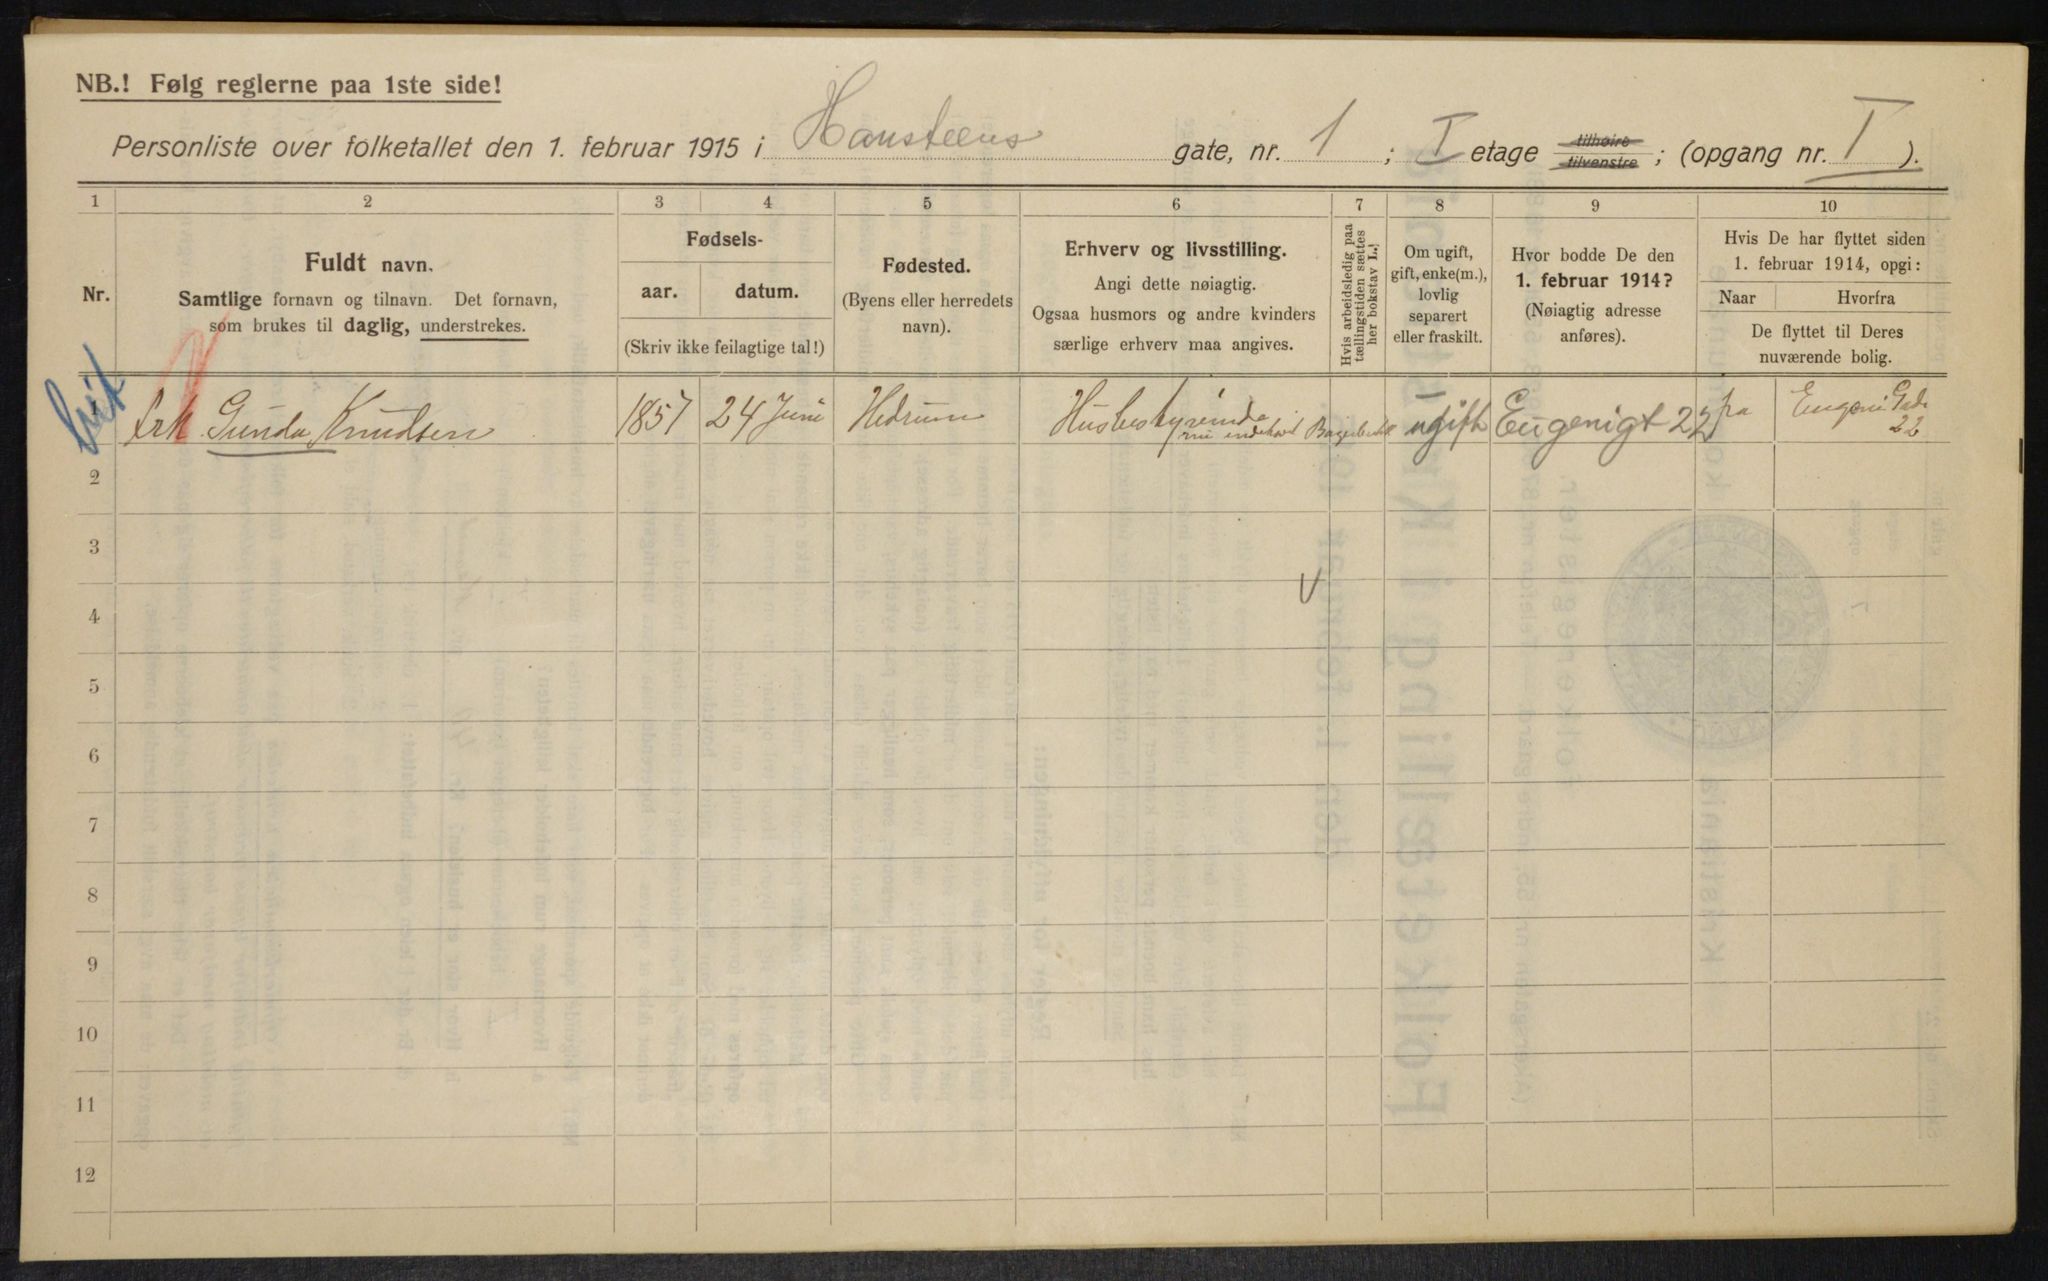 NB.! Følg reglerne paa 1ste side!
Personliste over folketallet den 1. februar 1915 i Hansteens gate, nr. 1 ; I etage tilhøire tilvenstre ; (opgang nr. I ).
1 2 3 4 5 6 7 8 9 10
Nr.
Fuldt navn.
Samtlige fornavn og tilnavn. Det fornavn,
som brukes til daglig, understrekes.
Fødsels-
aar. datum.
(Skriv ikke feilagtige tal!)
Fødested.
(Byens eller herredets
navn).
Erhverv og livsstilling.
Angi dette nøiagtig.
Ogsaa husmors og andre kvinders
særlige erhverv maa angives.
Hvis arbeidsledig paa
tællingstiden sættes
her bokstav L.!
Om ugift,
gift, enke(m.),
lovlig
separert
eller fraskilt.
Hvor bodde De den
1. februar 1914?
(Nøiagtig adresse
anføres).
Hvis De har flyttet siden
1. februar 1914, opgi:
Naar Hvorfra
De flyttet til Deres
nuværende bolig.
1 frk Gunda Knudsen 1857 24 Juni Hedrum Husbestyrinde ugift Eugenigt 22 fra Eugeni Gade
22
2
3
4
5
6
7
8
9
10
11
12